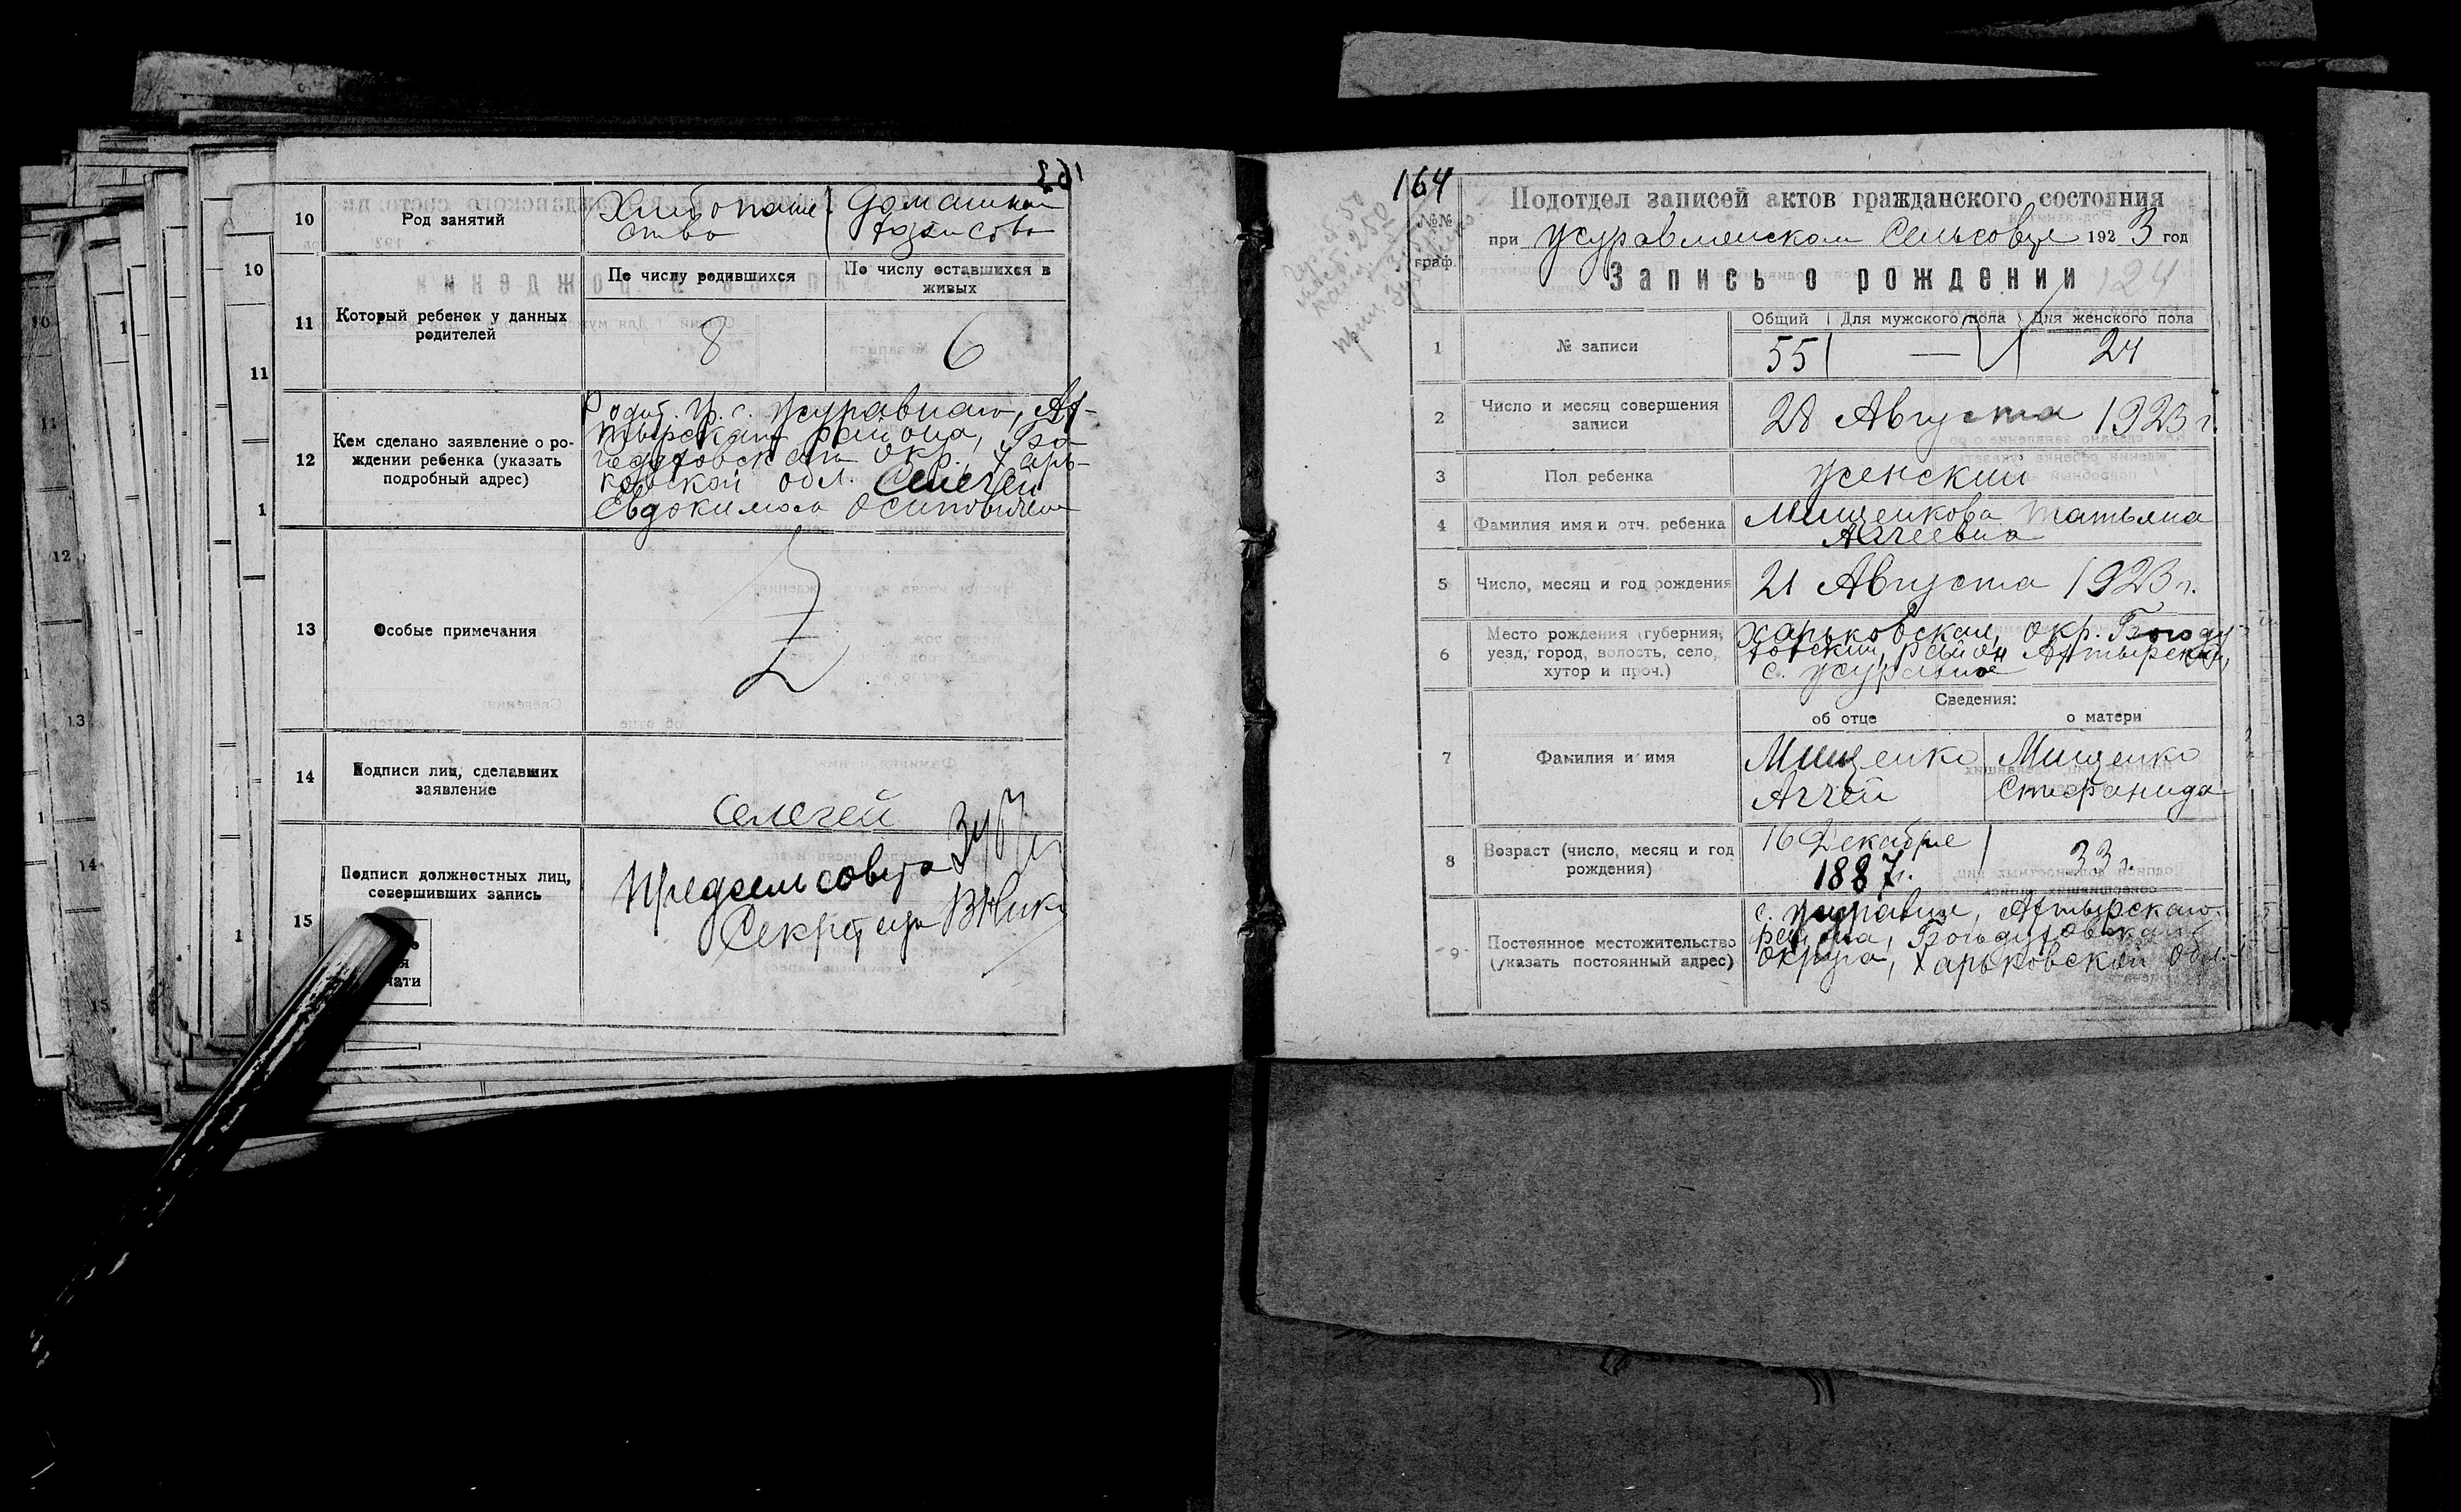 163
10
Род занятий
Хлебопаше-
ство
Домашнее
хозяйство
11
Который ребенок у данных
родителей
По числу родившихся
По числу оставшихся в
живых
8
6
12
Кем сделано заявление о ро-
ждении ребенка (указать
подробный адрес)
гр. с. Журавного, Ах-
тырского района, Бо-
годуховского окр., Харь-
ковской обл. Селегей
Евдокимом Осиповичем
13
Особые примечания
14
Подписи лиц, сделавших
заявление
Селегей
15
Подписи должностных лиц,
совершивших запись
Предсельсовета
Секретарь
чати
10
11
1
164
№№
граф.
Подотдел записей актов гражданского состояния
при Журавлянском Сельсовете 1923 год
Запись о рождении
124
1
№ записи
Общий
Для мужского пола
Для женского пола
55
—
24
2
Число и месяц совершения
записи
28 Августа 1923 г.
3
Пол ребенка
женский
4
Фамилия имя и отч. ребенка
Мищенкова Татьяна
Аггеевна
5
Число, месяц и год рождения
21 Августа 1923 г.
6
Место рождения (губерния,
уезд, город, волость, село,
хутор и проч.)
Харьковская, окр. Богоду-
ховский, район Ахтырский,
с. Журавное
Сведения:
об отце
о матери
7
Фамилия и имя
Мищенко
Аггей
Мищенко
Стефанида
8
Возраст (число, месяц и год
рождения)
16 Декабря
1887 г.
33 г.
9
Постоянное местожительство
(указать постоянный адрес)
Ахтырского
района, Богодуховского
округа, Харьковской обл.